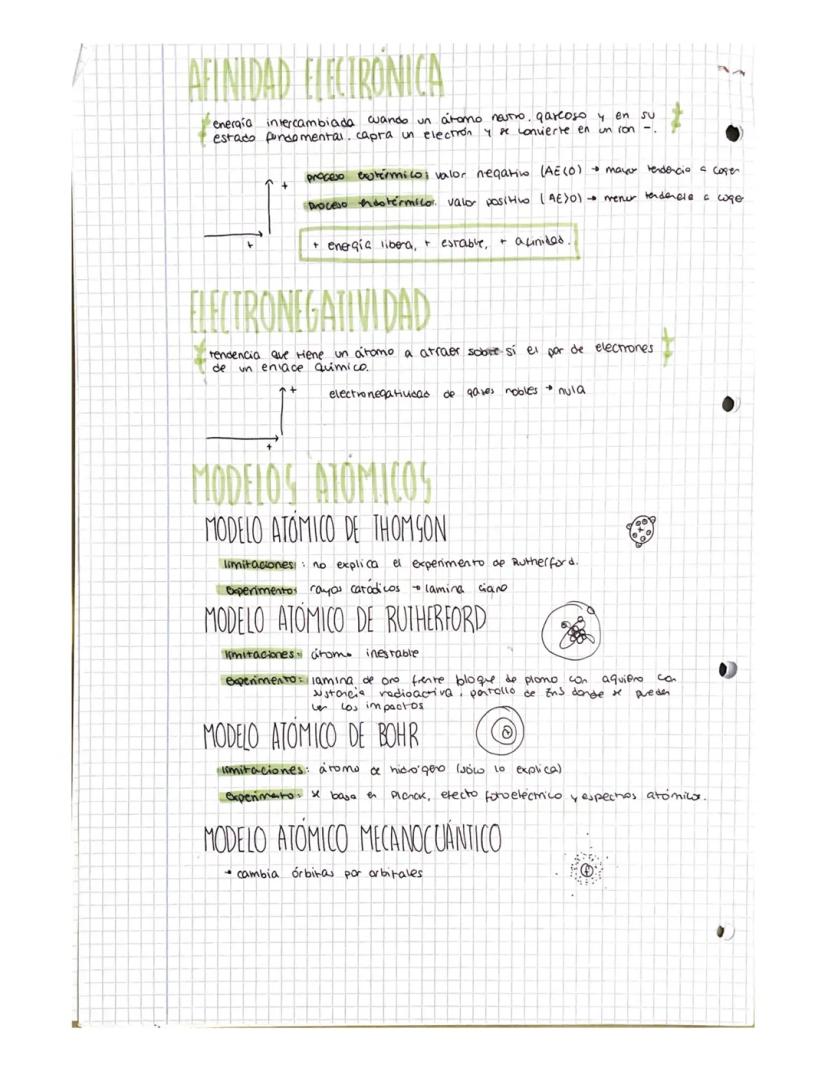 AFINIDAD ELECTRÓNICA
energía intercambiada cuando un átomo neutro, gaseoso y en su
estado fundamental, capta un electrón y se convierte en un ion -.
+
proceso exotérmico: valor negativo (AE<0) → mayor tendencia a coger
proceso endotérmico: valor positivo (AE>0) → menor tendencia a coger
+
+ energía libera, + estable, + afinidad.
ELECTRONEGATIVIDAD
tendencia que tiene un átomo a atraer sobre sí el par de electrones
de un enlace químico.
+
electronegatividad de gases nobles → nula
+
MODELOS ATÓMICOS
MODELO ATÓMICO DE THOMSON
limitaciones: no explica el experimento de Rutherford.
experimento: rayos catódicos → lamina
MODELO ATÓMICO DE RUTHERFORD
limitaciones: átomo inestable
experimento: lamina de oro frente bloque de plomo con con
sustancia radioactiva, pantalla de ZnS donde se pueden
ver los impactos
MODELO ATÓMICO DE BOHR
limitaciones: átomo de hidrógeno (sólo lo explica)
experimento: se basa en Planck, efecto fotoeléctrico y espectros atómicos.
MODELO ATÓMICO MECANOCUÁNTICO
→ cambia órbitas por orbitales